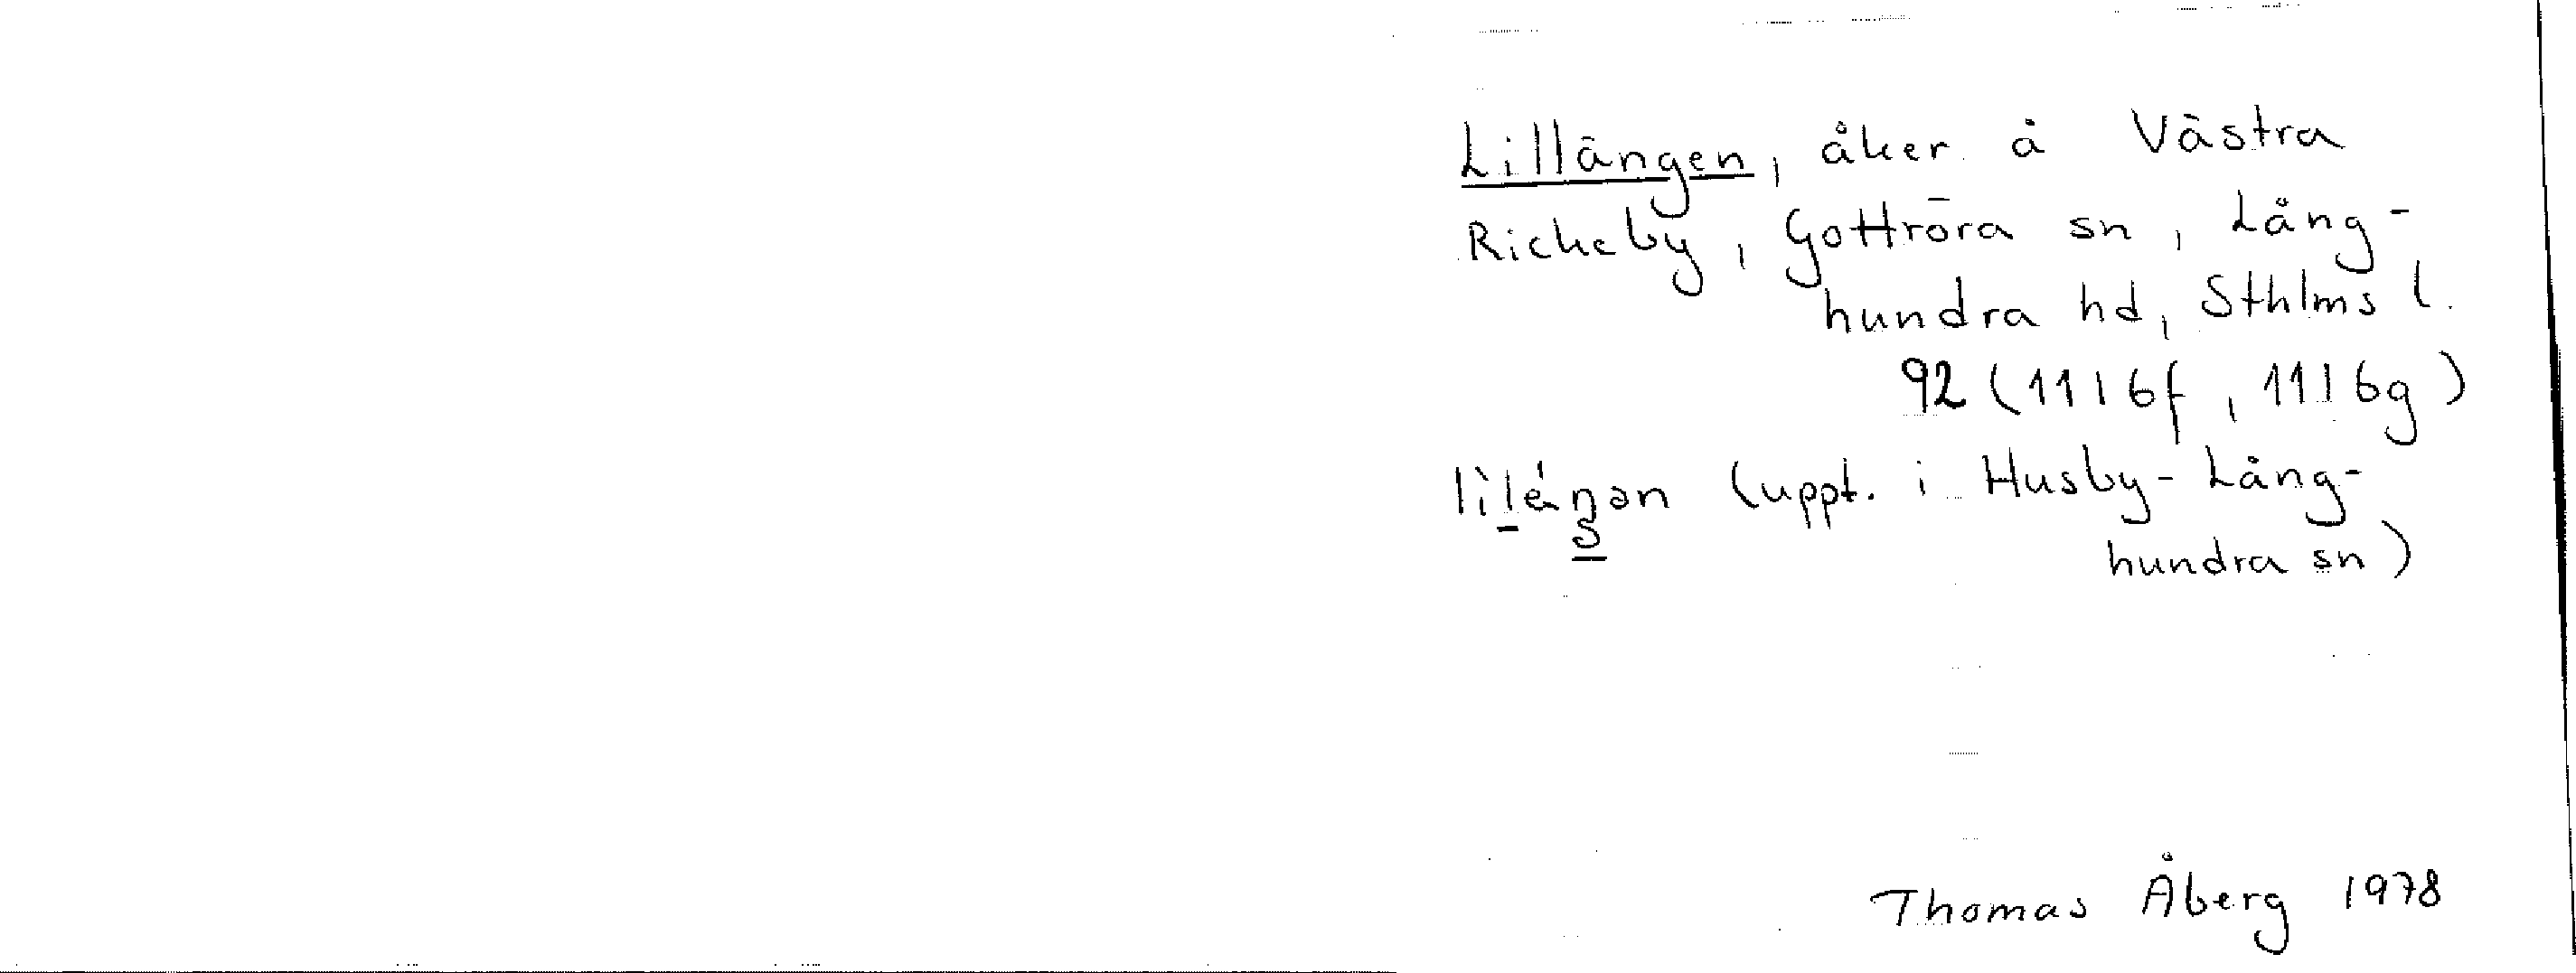 Lillängen, åker å Västra
Rickeby, Gottröra sn, Lång-
hundra hd, Sthlms l.
92 (1116f, 1116g)
(uppt. i Husby-Lång-
hundra sn)
Thomas Åberg 1978